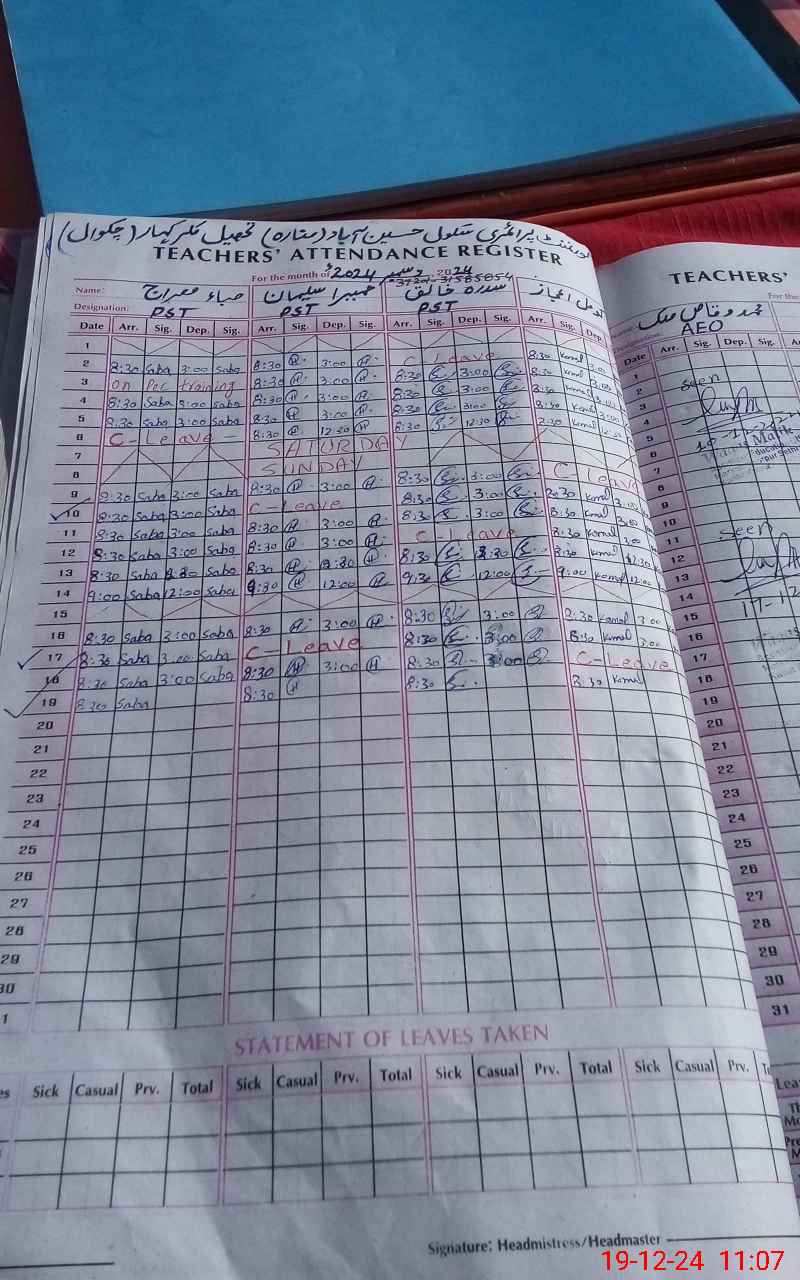 گورنمنٹ پرائمری سکول حسین آباد (منارہ) تحصیل کلر کہار (چکوال)
TEACHERS' ATTENDANCE REGISTER
For the month of دسمبر 2024
Name: صباء معراج حمیرا سلیمان سدرہ خالق کومل اعجاز
Designation: PST PST PST
Date Arr. Sig. Dep. Sig. Arr. Sig. Dep. Sig. Arr. Sig. Dep. Sig. Arr. Sig. Dep.
1
2 8:30 Saba 3:00 Saba 8:30 H 3:00 H C Leave 8:30 Komal 3:00
3 On Pec training 8:30 H 3:00 H 8:30 3:00 8:30 Komal 3:00
4 8:30 Saba 3:00 Saba 8:30 H 3:00 H 8:30 3:00 8:30 Komal 3:00
5 8:30 Saba 3:00 Saba 8:30 H 3:00 H 8:30 3:00 8:30 Komal 3:00
6 C-Leave- 8:30 H 12:30 H 8:30 12:30 8:30 Komal 12:30
7 SATURDAY
8 SUNDAY
9 8:30 Saba 3:00 Saba 8:30 H 3:00 H 8:30 3:00 C-Leave
10 8:30 Saba 3:00 Saba C-Leave 8:30 3:00 8:30 Komal 3:00
11 8:30 Saba 3:00 Saba 8:30 H 3:00 H 8:30 3:00 8:30 Komal 3:00
12 8:30 Saba 3:00 Saba 8:30 H 3:00 H C-Leave 8:30 Komal 3:00
13 8:30 Saba Saba 8:30 H H 8:30 8:30 Komal 12:30
14 9:00 Saba 12:00 Saba 9:30 H 12:00 H 9:30 12:00 9:00 Komal 12:00
15
16 8:30 Saba 3:00 Saba 8:30 H 3:00 H 8:30 3:00 8:30 Komal 3:00
17 8:30 Saba 3:00 Saba C-Leave 8:30 3:00 8:30 Komal 3:00
18 8:30 Saba 3:00 Saba 8:30 H 3:00 H 8:30 3:00 C-Leave
19 8:30 Saba 8:30 H 8:30 8:30 Komal
20
21
22
23
24
25
26
27
28
29
30
1
STATEMENT OF LEAVES TAKEN
es Sick Casual Prv. Total Sick Casual Prv. Total Sick Casual Prv. Total Sick Casual Prv.
Signature: Headmistress/Headmaster
TEACHERS'
For the
محمد وقاص ملک
AEO
Date Arr. Sig. Dep. Sig.
1
2
3 seen
4
5
6
7
8
9
10
11 seen
12
13
14
15
16
17
18
19
20
21
22
23
24
25
26
27
28
29
30
31
Lea
19-12-24 11:07